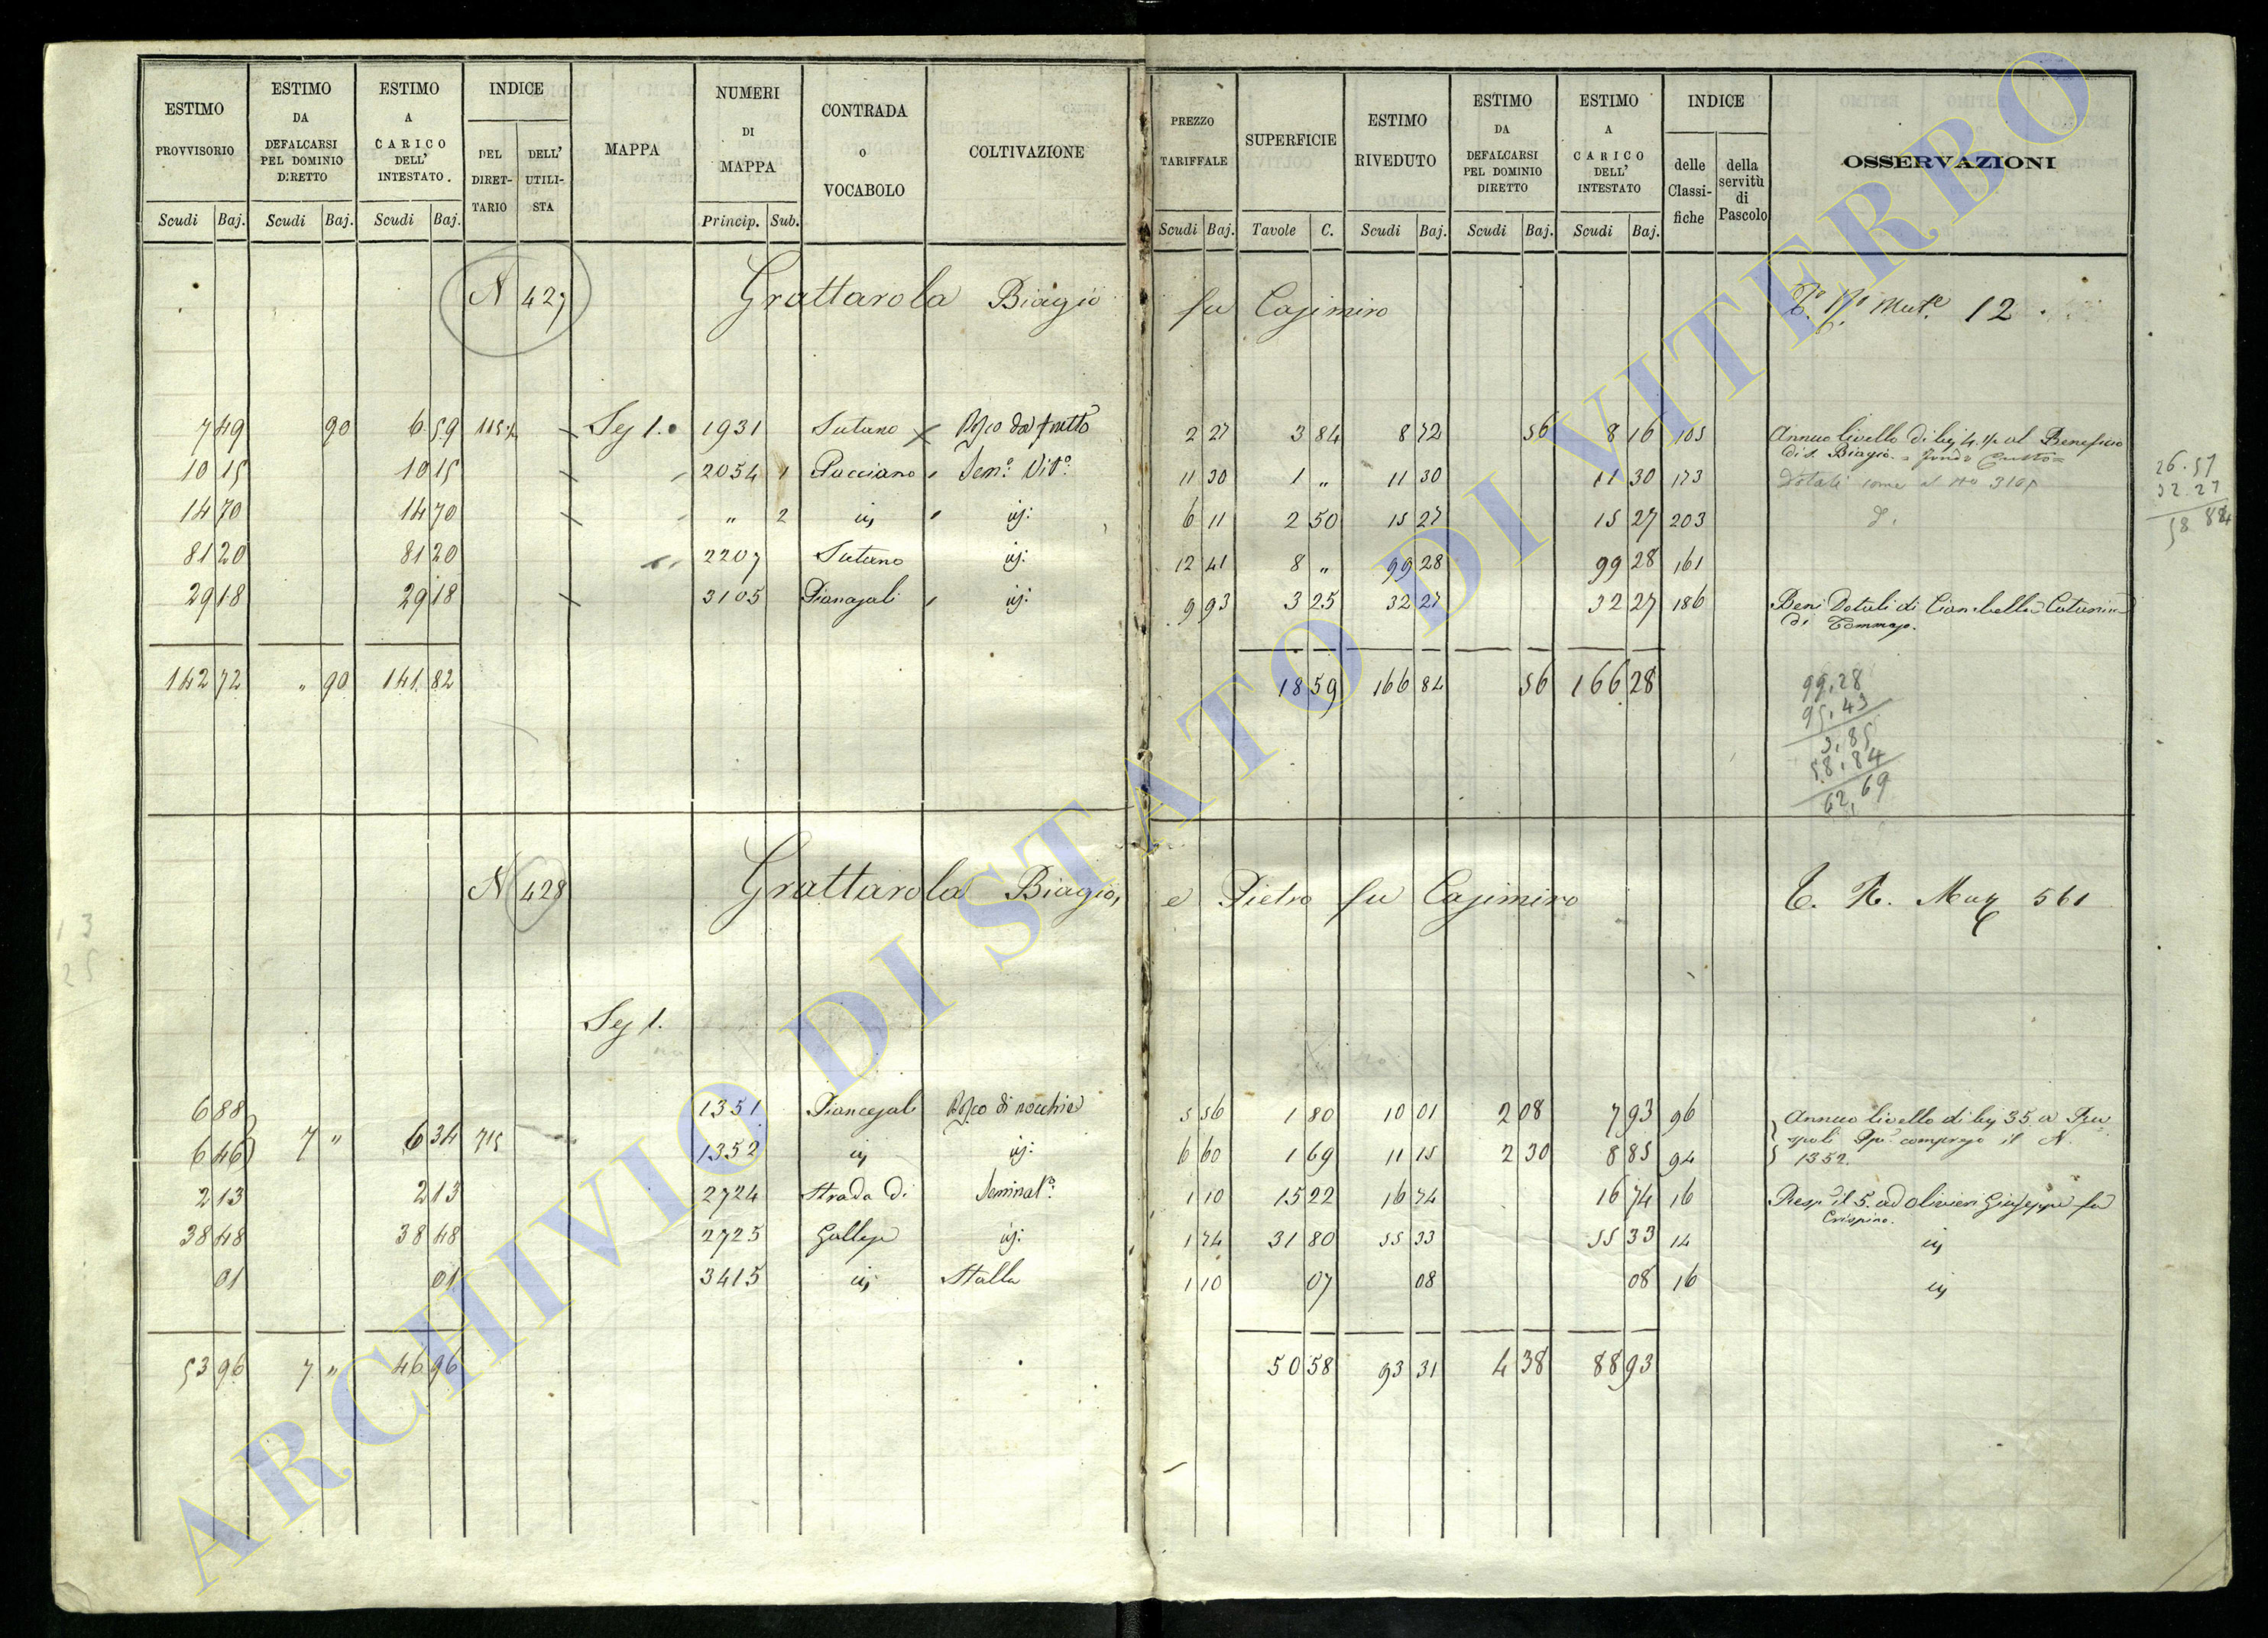 ESTIMO PROVVISORIO
ESTIMO DA DEFALCARSI PEL DOMINIO DIRETTO
ESTIMO A CARICO DELL' INTESTATO.
INDICE
DEL DIRET-TARIO
DELL' UTILI-STA
MAPPA
NUMERI DI MAPPA
CONTRADA o VOCABOLO
COLTIVAZIONE
PREZZO TARIFFALE
SUPERFICIE
ESTIMO RIVEDUTO
ESTIMO DA DEFALCARSI PEL DOMINIO DIRETTO
ESTIMO A CARICO DELL' INTESTATO
INDICE
delle Classi-fiche
della servitù di Pascolo
OSSERVAZIONI
Scudi Baj. Scudi Baj. Scudi Baj. Princip. Sub. Scudi Baj. Tavole C. Scudi Baj. Scudi Baj. Scudi Baj.
N 427 Grattarola Biagio fu Casimiro 12
7 49 90 6 59 Seg 1. 1931 Sutano 2 27 3 84 8 72 56 8 16 105 Annuo livello di al Beneficio
di S. Biagio.
10 15 10 15 2054 1 Pacciano Sem.o Vit.o 11 30 1 " 11 30 11 30 173
14 70 14 70 " 2 6 11 2 50 15 27 15 27 203
81 20 81 20 2207 Sutano 12 41 8 " 99 28 99 28 161
29 18 29 18 3105 9 93 3 25 32 27 32 27 186 Beni Dotali di
di Tommaso.
142 72 " 90 141 82 18 59 166 84 56 166 28
26.57
32.27
58.84
99,28
95,43
3,85
58,84
62,69
N 428 Grattarola Biagio, e Pietro fu Casimiro 561
Seg 1.
6 88 1351 5 56 1 80 10 01 2 08 7 93 96 Annuo livello di 35 a Ru
6 46 7 " 6 34 715 1352 6 60 1 69 11 15 2 30 8 85 94 spoli compreso il N.
1352.
2 13 2 13 2724 Strada di Seminat.o 1 10 15 22 16 74 16 74 16 il 5. ad Olivieri Giuseppe fu
Crispino.
38 48 38 48 2725 Gallese 1 74 31 80 55 33 55 33 14
01 01 3415 Stalla 1 10 07 08 08 16
53 96 7 " 46 96 50 58 93 31 4 38 88 93
ARCHIVIO DI STATO DI VITERBO